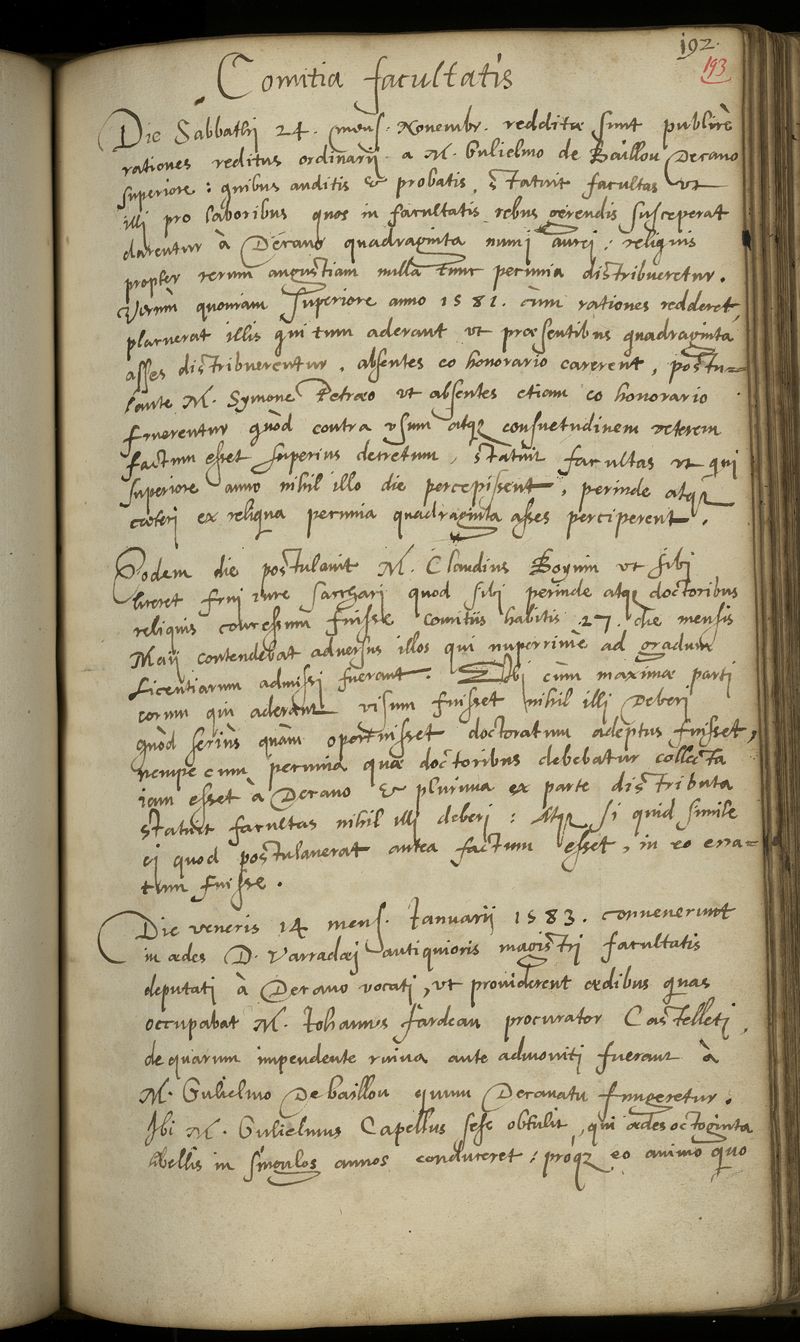 192.
193
Comitia facultatis
Die Sabbathi 24. mens. Novembr. redditæ sunt publicè
rationes reditus ordinarij a M. Gulielmo de Baillou Decano
superiore : quibus auditis & probatis, statuit facultas ut
illi pro laboribus quos in facultatis rebus gerendis susceperat
darentur à Decano quadraginta numi aurei : reliquis
propter rerum angustiam nulla tunc pecunia distribueretur.
Verùm quoniam superiore anno 1581. cùm rationes redderet,
placuerat illis qui tum aderant ut præsentibus quadraginta
asses distribuerentur, absentes eo honorario carerent, postu=
lante M. Symone Petræo ut absentes etiam eo honorario
fruerentur quòd contra usum atq; consuetudinem veterem
factum esset superius decretum, statuit facultas ut qui
superiore anno nihil illo die percepissent, perinde atq;
cæteri ex reliqua pecunia quadraginta asses perciperent.
Eodem die postulavit M. Claudius Boyvin ut sibi
liceret frui iure sacchari quod sibi perinde atq; doctoribus
reliquis concessum fuisse comitiis habitis 27. die mensis
Maij contendebat adversus illos qui nuperrimè ad gradum
Licentiarum admissi fuerant. Ibi cùm maximæ parti
eorum qui aderant visum fuisset nihil illi deberi
quòd seriùs quàm oportuisset doctoratum adeptus fuisset,
nempe cum pecunia quæ doctoribus debebatur collecta
iam esset à Decano & plurima ex parte distributa
statuit facultas nihil illi deberi : Atq; si quid simile
ei quod postulaverat antea factum esset, in eo erra=
tum fuisse.
Die veneris 14 mens. Ianuarij 1583. convenerunt
in ædes D. Varradæi antiquioris magistri facultatis
deputati à Decano vocati, ut providerent ædibus quas
occupabat M. Iohannes Fardeau procurator Castelleti,
de quarum impendente ruina ante admoniti fuerant à
M. Gulielmo De baillou quum Decanatu fungeretur.
Ibi M. Gulielmus Capellus sese obtulit, qui ædes octoginta
libellis in singulos annos conduceret : proq; eo animo quo